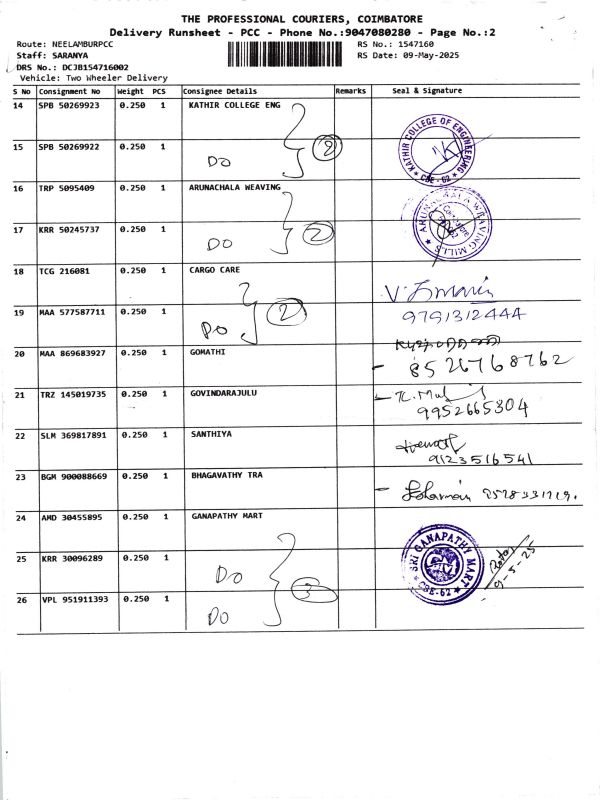 THE PROFESSIONAL COURIERS, COIMBATORE
Delivery Runsheet - PCC - Phone No.:9047080280 - Page No.:2
Route: NEELAMBURPCC
RS No.: 1547160
Staff: SARANYA
RS Date: 09-May-2025
DRS No.: DCJB154716002
Vehicle: Two Wheeler Delivery
S No Consignment No Weight PCS Consignee Details Remarks Seal & Signature
14 SPB 50269923 0.250 1 KATHIR COLLEGE ENG
KATHIR COLLEGE OF ENGINEERING
CBE - 62
15 SPB 50269922 0.250 1 DO 2
16 TRP 5095409 0.250 1 ARUNACHALA WEAVING
ARUNACHALA WEAVING MILLS
17 KRR 50245737 0.250 1 DO 2
18 TCG 216081 0.250 1 CARGO CARE
19 MAA 577587711 0.250 1 DO 2 9791312444
20 MAA 869683927 0.250 1 GOMATHI 8526768762
21 TRZ 145019735 0.250 1 GOVINDARAJULU 9952665304
22 SLM 369817891 0.250 1 SANTHIYA 9123516541
23 BGM 900088669 0.250 1 BHAGAVATHY TRA
24 AMD 30455895 0.250 1 GANAPATHY MART
SRI GANAPATHY MART
CBE-62
9-5-25
25 KRR 30096289 0.250 1 DO 3
26 VPL 951911393 0.250 1 DO